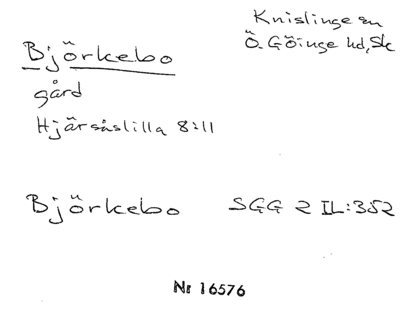 Knislinge sn
Ö. Göinge hd, Sk
Björkebo
gård
Hjärsåslilla 8:11
Björkebo SGG 2 IL:352
Nr 16576